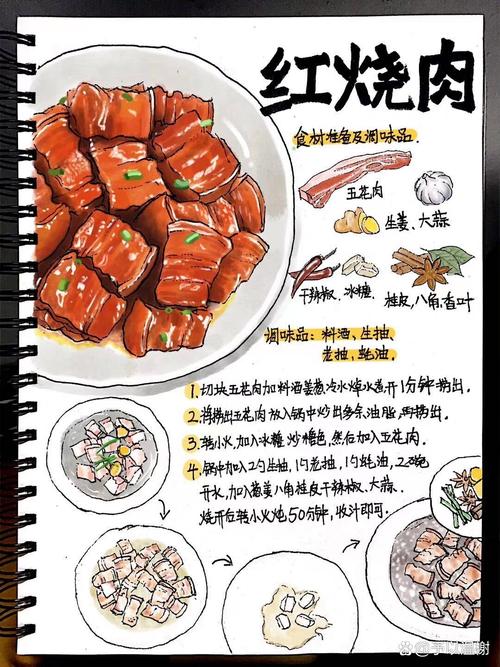 红烧肉
食材准备及调味品.
五花肉
生姜、大蒜
干辣椒、冰糖.
桂皮,八角,香叶
调味品:料酒、生抽、
老抽,蚝油.
1.切块五花肉加料酒姜葱,冷水焯水煮开1分钟捞出.
2.将捞出五花肉放入锅中炒出多余油脂,再捞出.
3.转小火,加入冰糖炒糖色,然后加入五花肉.
4.锅中加入2勺生抽,1勺老抽,1勺蚝油,2.5碗
开水,加入葱姜八角桂皮干辣椒、大蒜.
烧开后转小火炖50分钟,收汁即可.